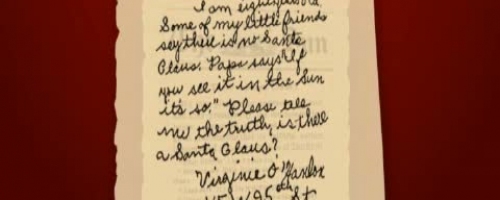 I am eight years old.
Some of my little friends
say their is no Santa
Claus. Papa says "If
you see it in the Sun
it's so." Please tell
me the truth, is there
a Santa Claus?
Virginia O'Hanlon
115 W 95th St